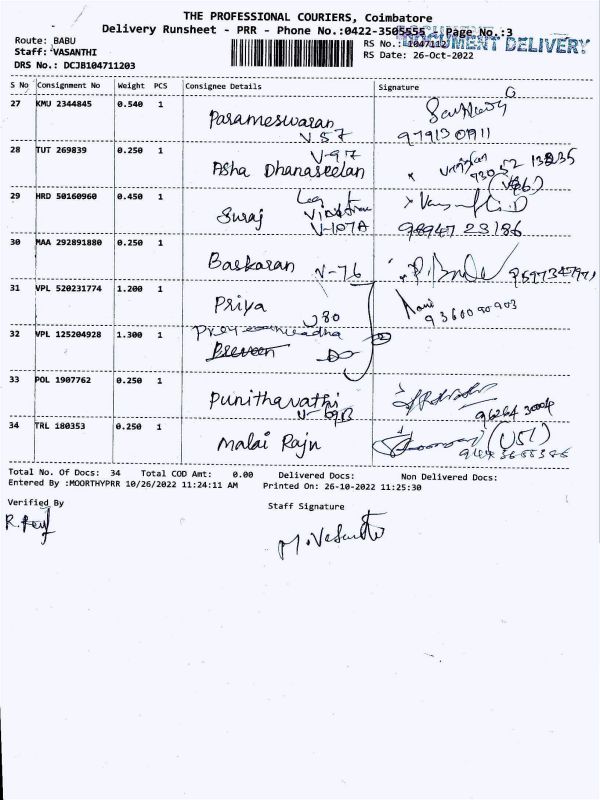 THE PROFESSIONAL COURIERS, Coimbatore
Delivery Runsheet - PRR - Phone No.:0422-3505555 - Page No.:3
DOCUMENT DELIVERY
Route: BABU
RS No.:1047112
Staff: VASANTHI
RS Date: 26-Oct-2022
DRS No.: DCJB104711203
S No Consignment No Weight PCS Consignee Details Signature
27 KMU 2344845 0.540 1 Parameswaran
V-57 979130 0911
28 TUT 269839 0.250 1 V-97
Asha Dhanaseelan
29 HRD 50160960 0.450 1
Suraj V-107A 98947 23186
30 MAA 292891880 0.250 1 Baskaran V-76
31 VPL 520231774 1.200 1 Priya
9360090903
32 VPL 125204928 1.300 1
33 POL 1907762 0.250 1 Punithavathi
34 TRL 180353 0.250 1 Malai Raju
Total No. Of Docs: 34 Total COD Amt: 0.00 Delivered Docs: Non Delivered Docs:
Entered By :MOORTHYPRR 10/26/2022 11:24:11 AM Printed On: 26-10-2022 11:25:30
Verified By Staff Signature
M. Vasanthi